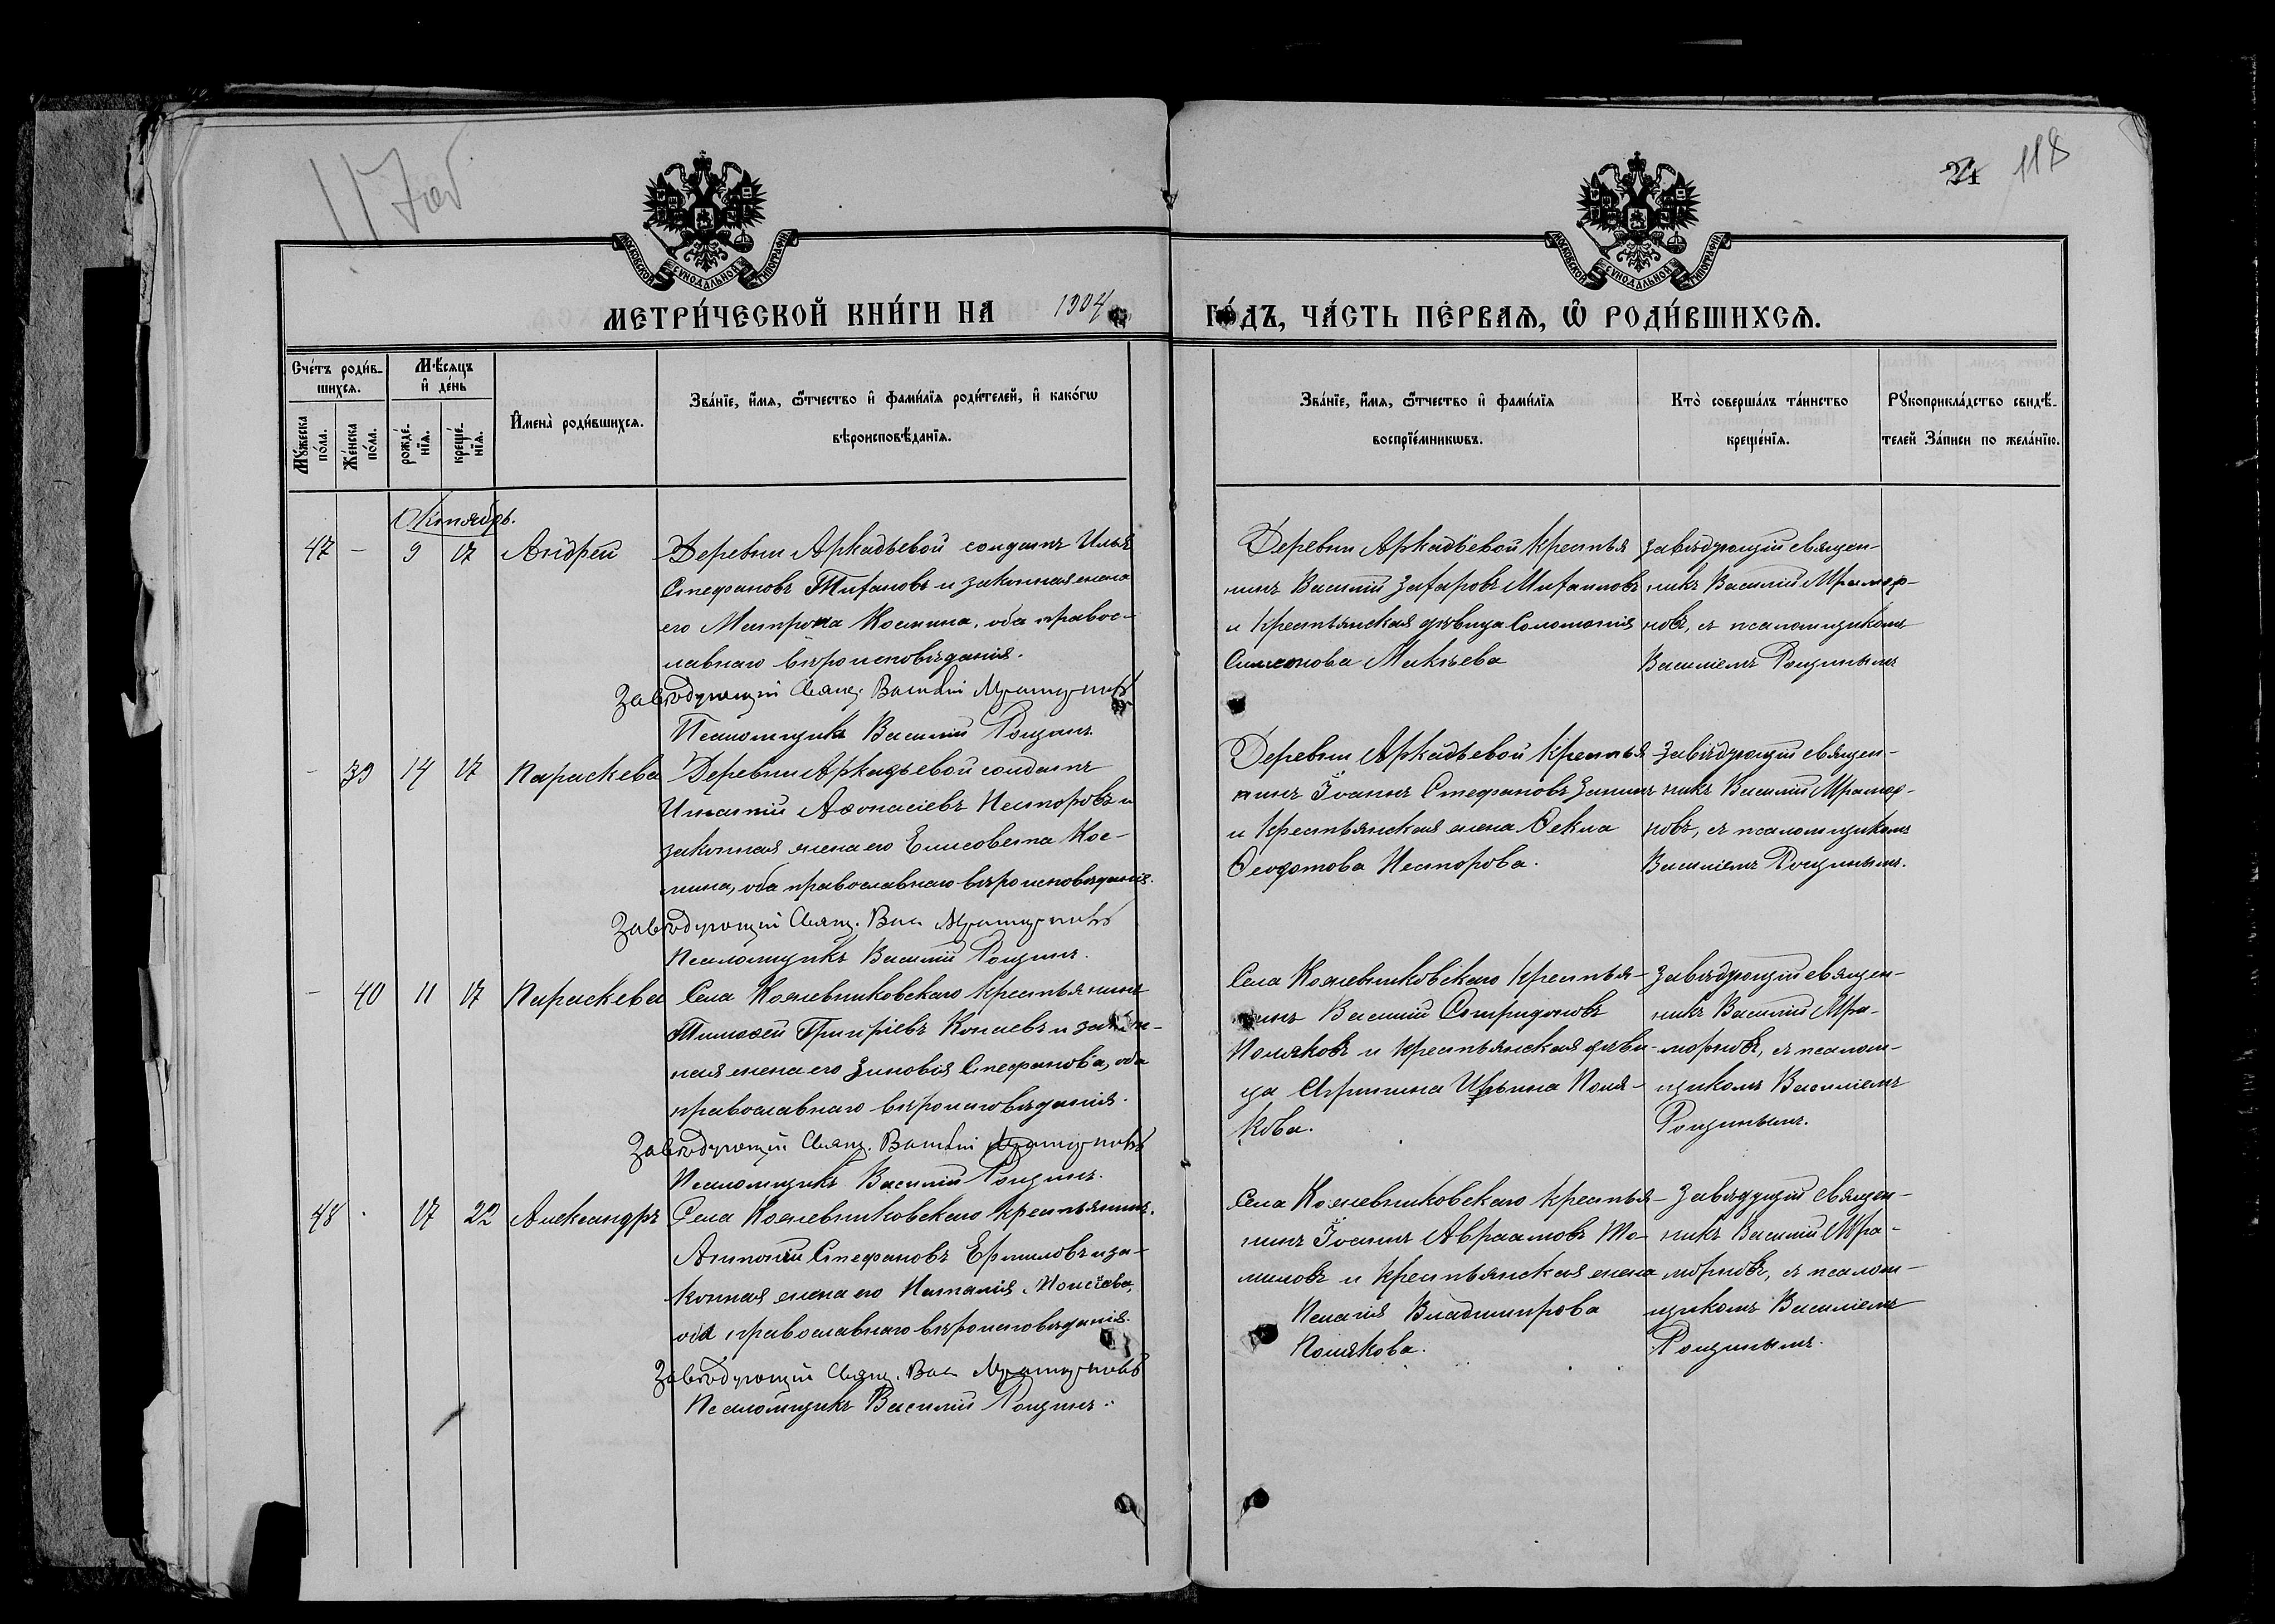 117об
24 118
МОСКОВСКОЙ СѴНОДАЛЬНОЙ ТИПОГРАФІИ
МОСКОВСКОЙ СѴНОДАЛЬНОЙ ТИПОГРАФІИ
МЕТРИ́ЧЕСКОЙ КНИ́ГИ НА 1904
ГО́ДЪ, ЧА́СТЬ ПЕ́РВАѦ, Ѽ РОДИ́ВШИХСѦ.
Сче́тъ роди́в-
шихсѧ.
Мѣ́сяцъ
и҆ де́нь
Мꙋ́жеска
по́ла.
Же́нска
по́ла.
рожде́-
нїѧ.
креще́-
нїѧ.
И҆мена̀ роди́вшихсѧ.
Зва́нїе, и҆́мѧ, ѻ҆́тчество и҆ фами́лїѧ роди́телей, и҆ како́гѡ
вѣроисповѣ́данїѧ.
Зва́нїе, и҆́мѧ, ѻ҆́тчество и҆ фами́лїѧ
воспрїе́мникѡвъ.
Кто̀ соверша́лъ та́инство
креще́нїѧ.
Рꙋкоприкла́дство свидѣ́-
телей За́писи по жела́нїю.
Октябрь.
47 – 9 17 Андрей
Деревни Аркадьевой солдатъ Илья
Стефановъ Тифановъ и законная жена
его Матрона Космина, оба правос-
лавнаго вѣроисповѣданія.
Завѣдующій Свящ. Василій Мраморновъ
Псаломщикъ Василій Рощинъ.
Деревни Аркадьевой крестья
нинъ Василій Захаровъ Михаиловъ
и крестьянская дѣвица Соломонія
Симеонова Макѣева
завѣдующій священ-
никъ Василій Мрамор-
новъ, съ псаломщикомъ
Василіемъ Рощинымъ
– 39 14 17 Параскева
Деревни Аркадьевой солдатъ
Игнатій Аѳонасіевъ Несторовъ и
законная жена его Елисовета Кос-
мина, оба православнаго вѣроисповѣданія.
Завѣдующій Свящ. Вас Мраморновъ
Псаломщикъ Василій Рощинъ.
Деревни Аркадьевой крестья
нинъ Іоаннъ Стефановъ Зининъ
и крестьянская жена Ѳекла
Ѳеодотова Несторова.
завѣдующій священ-
никъ Василій Мрамор-
новъ, съ псаломщикомъ
Василіемъ Рощинымъ.
– 40 11 17 Параскева
Села Кожевниковскаго крестьянинъ
Тимоѳей Григріевъ Копаевъ и закон-
ная жена его Зиновія Стефанова, оба
православнаго вѣроисповѣданія.
Завѣдующій Свящ. Василій Мраморновъ
Псаломщикъ Василій Рощинъ.
Села Кожевниковскаго крестья-
нинъ Василій Спиридоновъ
Поляковъ и крестьянская дѣви-
ца Агрипина Ильина Поля-
кова.
завѣдующій священ-
никъ Василій Мра-
морновъ, съ псалом-
щикомъ Василіемъ
Рощинымъ.
48 · 17 22 Александръ
Села Кожевниковскаго крестьянинъ.
Антоній Стефановъ Ермиловъ и за-
конная жена его Наталія Моисѣева,
оба православнаго вѣроисповѣданія.
Завѣдующій Свящ. Вас Мраморновъ
Псаломщикъ Василій Рощинъ.
Села Кожевниковскаго крестья-
нинъ Іоаннъ Авраамовъ То-
миловъ и крестьянская жена
Пелагія Владимирова
Полякова.
Завѣдущій священ-
никъ Василій Мра-
морновъ, съ псалом-
щикомъ Василіемъ
Рощинымъ.